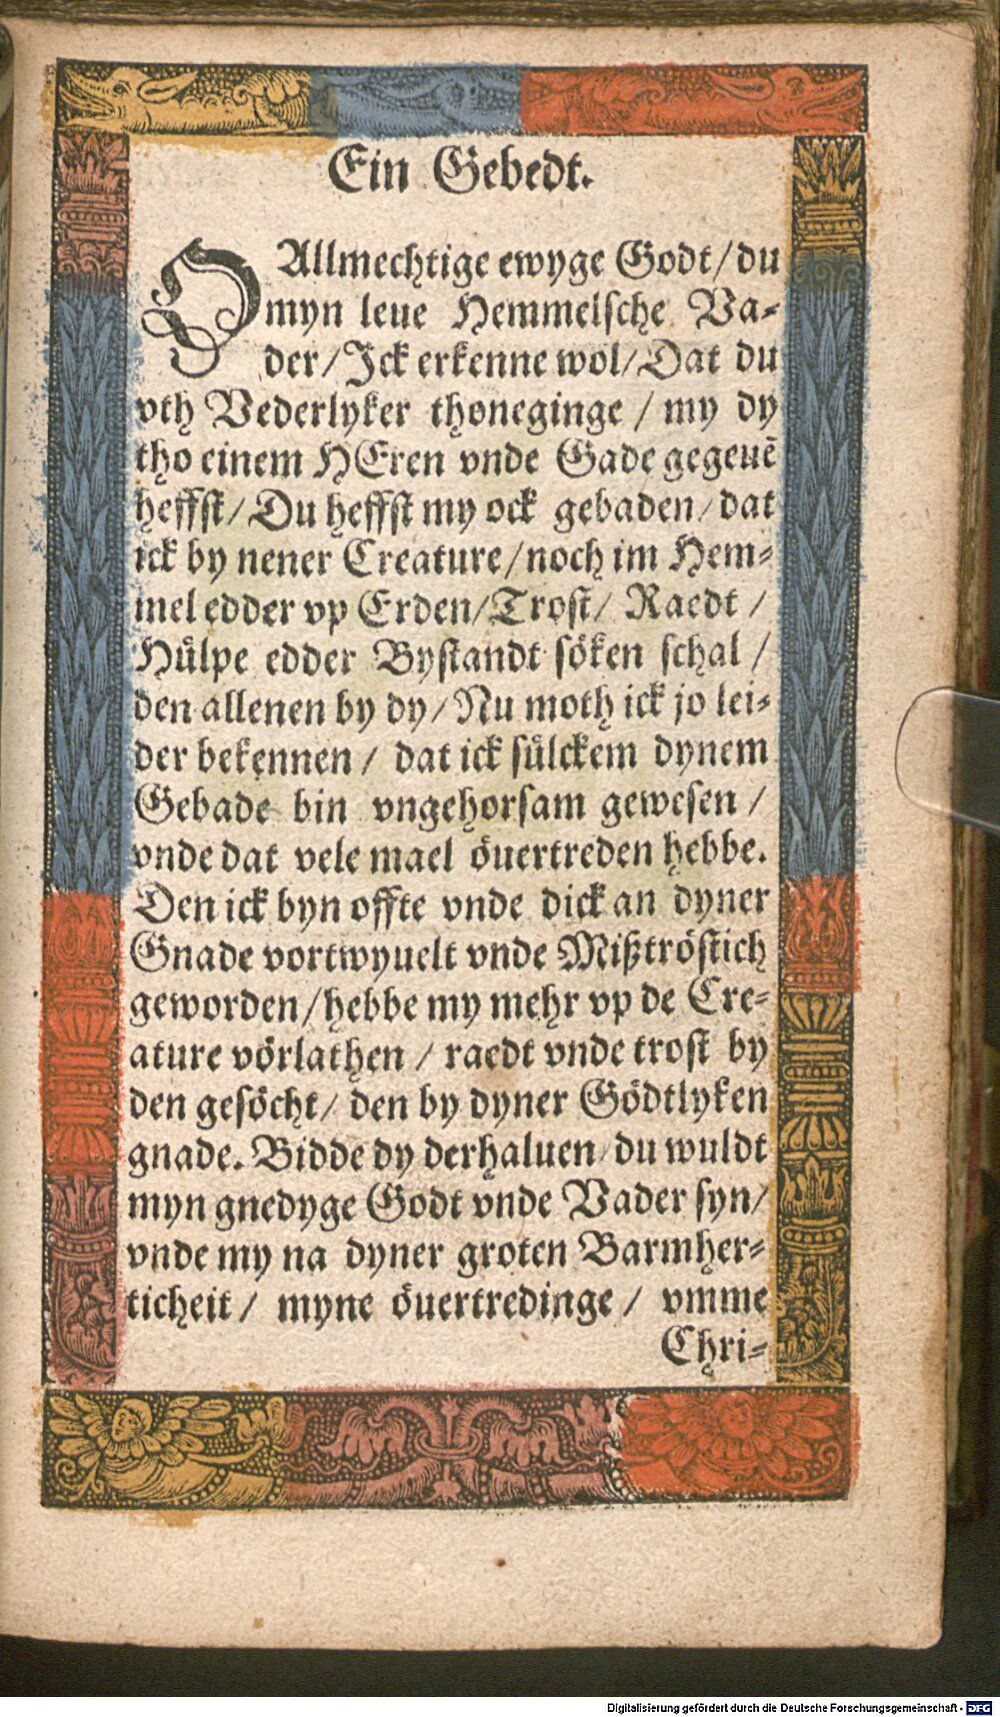 Ein Gebedt.
O Allmechtige ewyge Godt/ du
myn leue Hemmelsche Va-
der/ Ick erkenne wol/ Dat du
vth Vederlyker thoneginge / my dy
tho einem HEren vnde Gade gegeuē
heffst/ Du heffst my ock gebaden/ dat
ick by nener Creature/ noch im Hem-
mel edder vp Erden/ Trost/ Raedt /
Hülpe edder Bystandt söken schal /
den allenen by dy/ Nu moth ick jo lei-
der bekennen/ dat ick sülckem dynem
Gebade bin vngehorsam gewesen /
vnde dat vele mael öuertreden hebbe.
Den ick byn offte vnde dick an dyner
Gnade vortwyuelt vnde Mißtröstich
geworden/ hebbe my mehr vp de Cre-
ature vörlathen / raedt vnde trost by
den gesöcht/ den by dyner Gödtlyken
gnade. Bidde dy derhaluen/ du wuldt
myn gnedyge Godt vnde Vader syn/
vnde my na dyner groten Barmher-
ticheit/ myne öuertredinge / vmme
Chri-
Digitalisierung gefördert durch die Deutsche Forschungsgemeinschaft - DFG